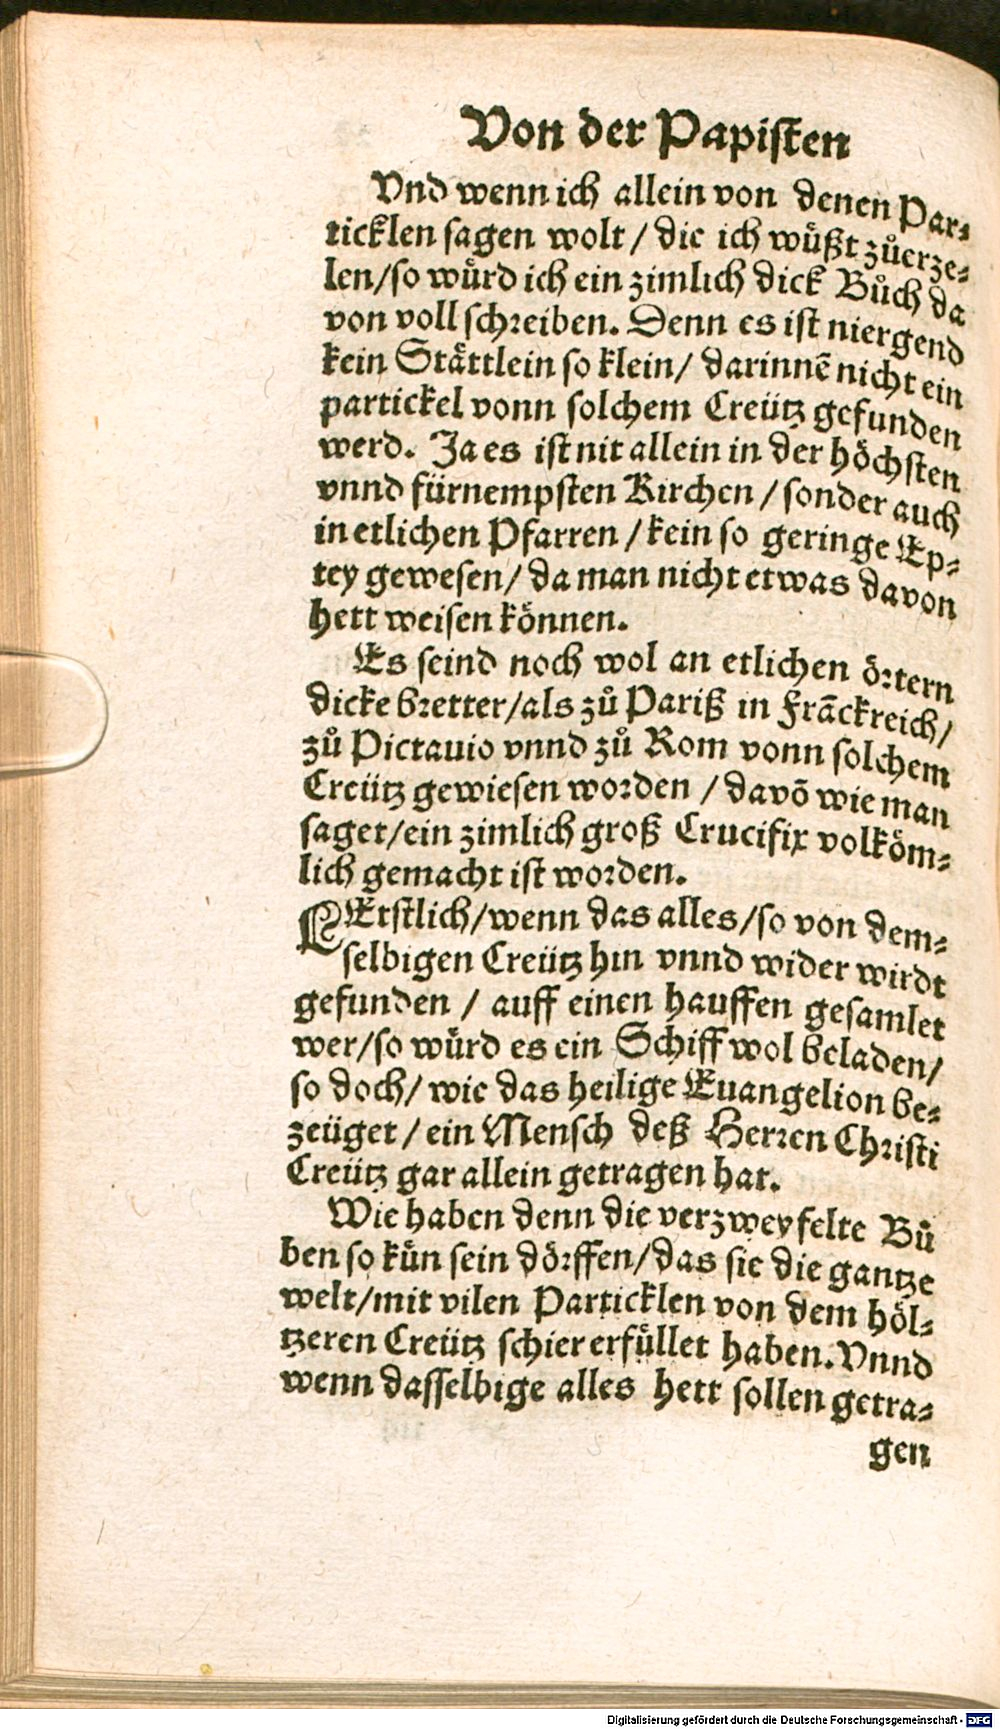 Von der Papisten
Vnd wenn ich allein von denen Par⸗
ticklen sagen wolt / die ich wüßt zůerze⸗
len/so wuͤrd ich ein zimlich dick Bůch da
von voll schreiben. Denn es ist niergend
kein Staͤttlein so klein/ darinnē nicht ein
partickel vonn solchem Creütz gefunden
werd. Ja es ist nit allein in der hoͤchsten
vnnd fürnempsten Kirchen / sonder auch
in etlichen Pfarren / kein so geringe Ep⸗
tey gewesen/ da man nicht etwas davon
hett weisen koͤnnen.
Es seind noch wol an etlichen oͤrtern
dicke bretter/als zů Pariß in Frāckreich/
zů Pictauio vnnd zů Rom vonn solchem
Creütz gewiesen worden / davō wie man
saget/ein zimlich groß Crucifix volkoͤm⸗
lich gemacht ist worden.
LEtstlich/wenn das alles/so von dem⸗
selbigen Creütz hin vnnd wider wirdt
gefunden / auff einen hauffen gesamlet
wer/so wuͤrd es ein Schiff wol beladen/
so doch/ wie das heilige Euangelion be⸗
zeüget / ein Mensch deß Herren Christi
Creütz gar allein getragen hat.
Wie haben denn die verzweyfelte Bů
ben so kuͤn sein doͤrffen/das sie die gantze
welt/mit vilen Particklen von dem hoͤl⸗
tzeren Creütz schier erfuͤllet haben. Vnnd
wenn dasselbige alles hett sollen getra⸗
gen
Digitalisierung gefördert durch die Deutsche Forschungsgemeinschaft - DFG